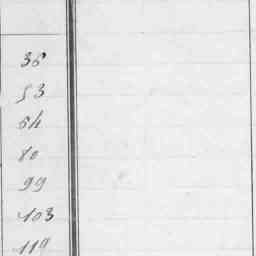 36
53
54
80
99
103
119